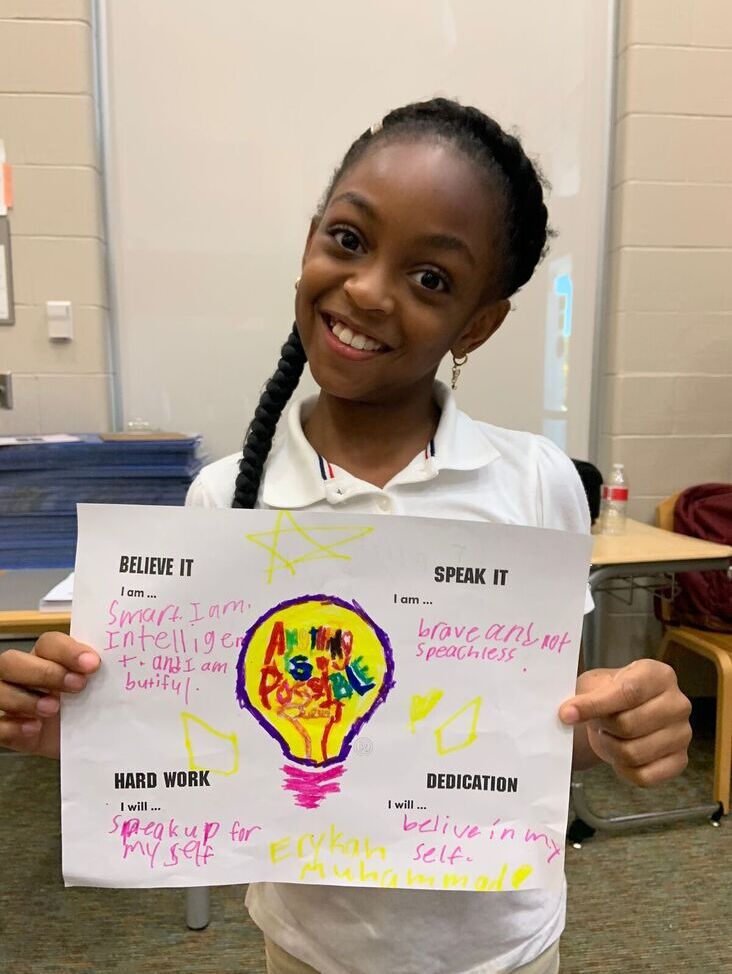 BELIEVE IT
I am ...
Smart. I am.
Intelligen
t. and I am
butiful.
SPEAK IT
I am ...
brave and not
speachless.
Anything
is
Possible
HARD WORK
I will ...
Speak up for
my self
DEDICATION
I will ...
belive in my
self.
Erykah
Muhammad